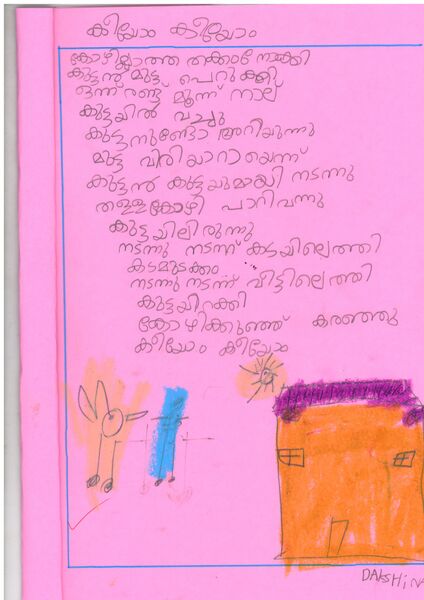 കീയോം കീയോം
കോഴില്ലാത്ത തക്കംനോക്കി
കുട്ടൻ മുട്ട പെറുക്കി
ഒന്ന് രണ്ട് മൂന്ന് നാല്
കുട്ടയിൽ വച്ചു
കുട്ടനുണ്ടോ അറിയുന്നു
മുട്ട വിരിയാറായെന്ന്
കുട്ടൻ കുട്ടയുമായി നടന്നു
തള്ളകോഴി പാറിവന്നു
കുട്ടയിലിരുന്നു
നടന്നു നടന്ന് കടയിലെത്തി
കടമുടക്കം
നടന്നു നടന്ന് വീട്ടിലെത്തി
കുട്ടയിറക്കി
കോഴിക്കുഞ്ഞ് കരഞ്ഞു
കീയോം കീയോം